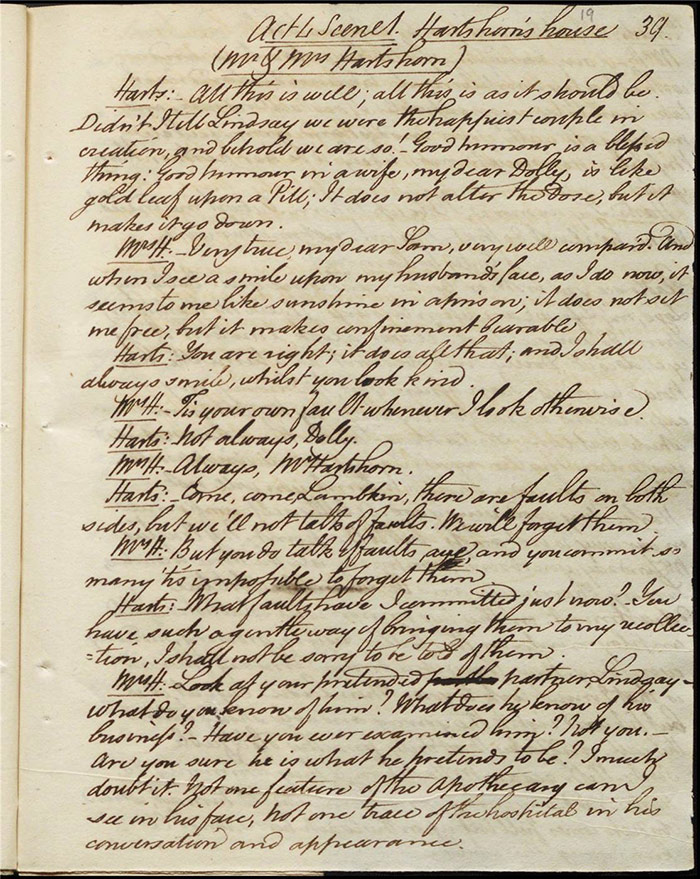 19
Act 4 Scene 1. Hartshorn's house 39.
(Mr & Mrs Hartshorn)
Harts:- All this is well; all this is as it should be.
Didn't I tell Lindsay we were the happiest couple in
creation, and behold we are so!- Good humour is a blessed
thing: Good humour in a wife, my dear Dolly, is like
gold leaf upon a Pill; It does not alter the Dose, but it
makes it go down.
Mrs H:- Very true, my dear Sam, very well compar'd. And
when I see a smile upon my husband's face, as I do now, it
seems to me like sunshine in a prison; it does not set
me free, but it makes confinement bearable
Harts: You are right; it does all that; and I shall
always smile, whilst you look kind.
Mrs H:- Tis your own fault whenever I look otherwise.
Harts: Not always, Dolly.
Mrs H:- Always, Mr Hartshorn.
Harts:- Come, come, Lambkin, there are faults on both
sides, but we'll not talk of faults. We will forget them
Mrs H:- But you do talk of faults, aye, and you commit so
many 'tis impossible to forget them.
Harts: What faults have I committed just now?- You
have such a gentle way of bringing them to my recollec-
=tion, I shall not be sorry to be told of them.
Mrs H:- Look at your pretended partner, Lindsay-
what do you know of him? What does he know of his
business?- Have you ever examined him? Not you.-
Are you sure he is what he pretends to be? I much
doubt it. Not one feature of the Apothecary can I
see in his face, not one trace of the hospital in his
conversation and appearance.